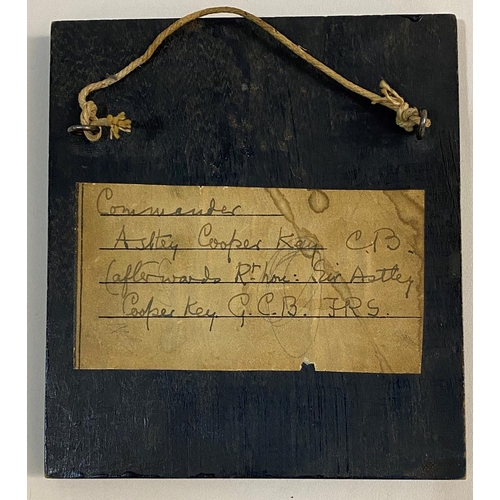 Commander
Astley Cooper Key C.B.
(afterwards Rt. hon: Sir Astley
Cooper Key G.C.B. F.R.S.